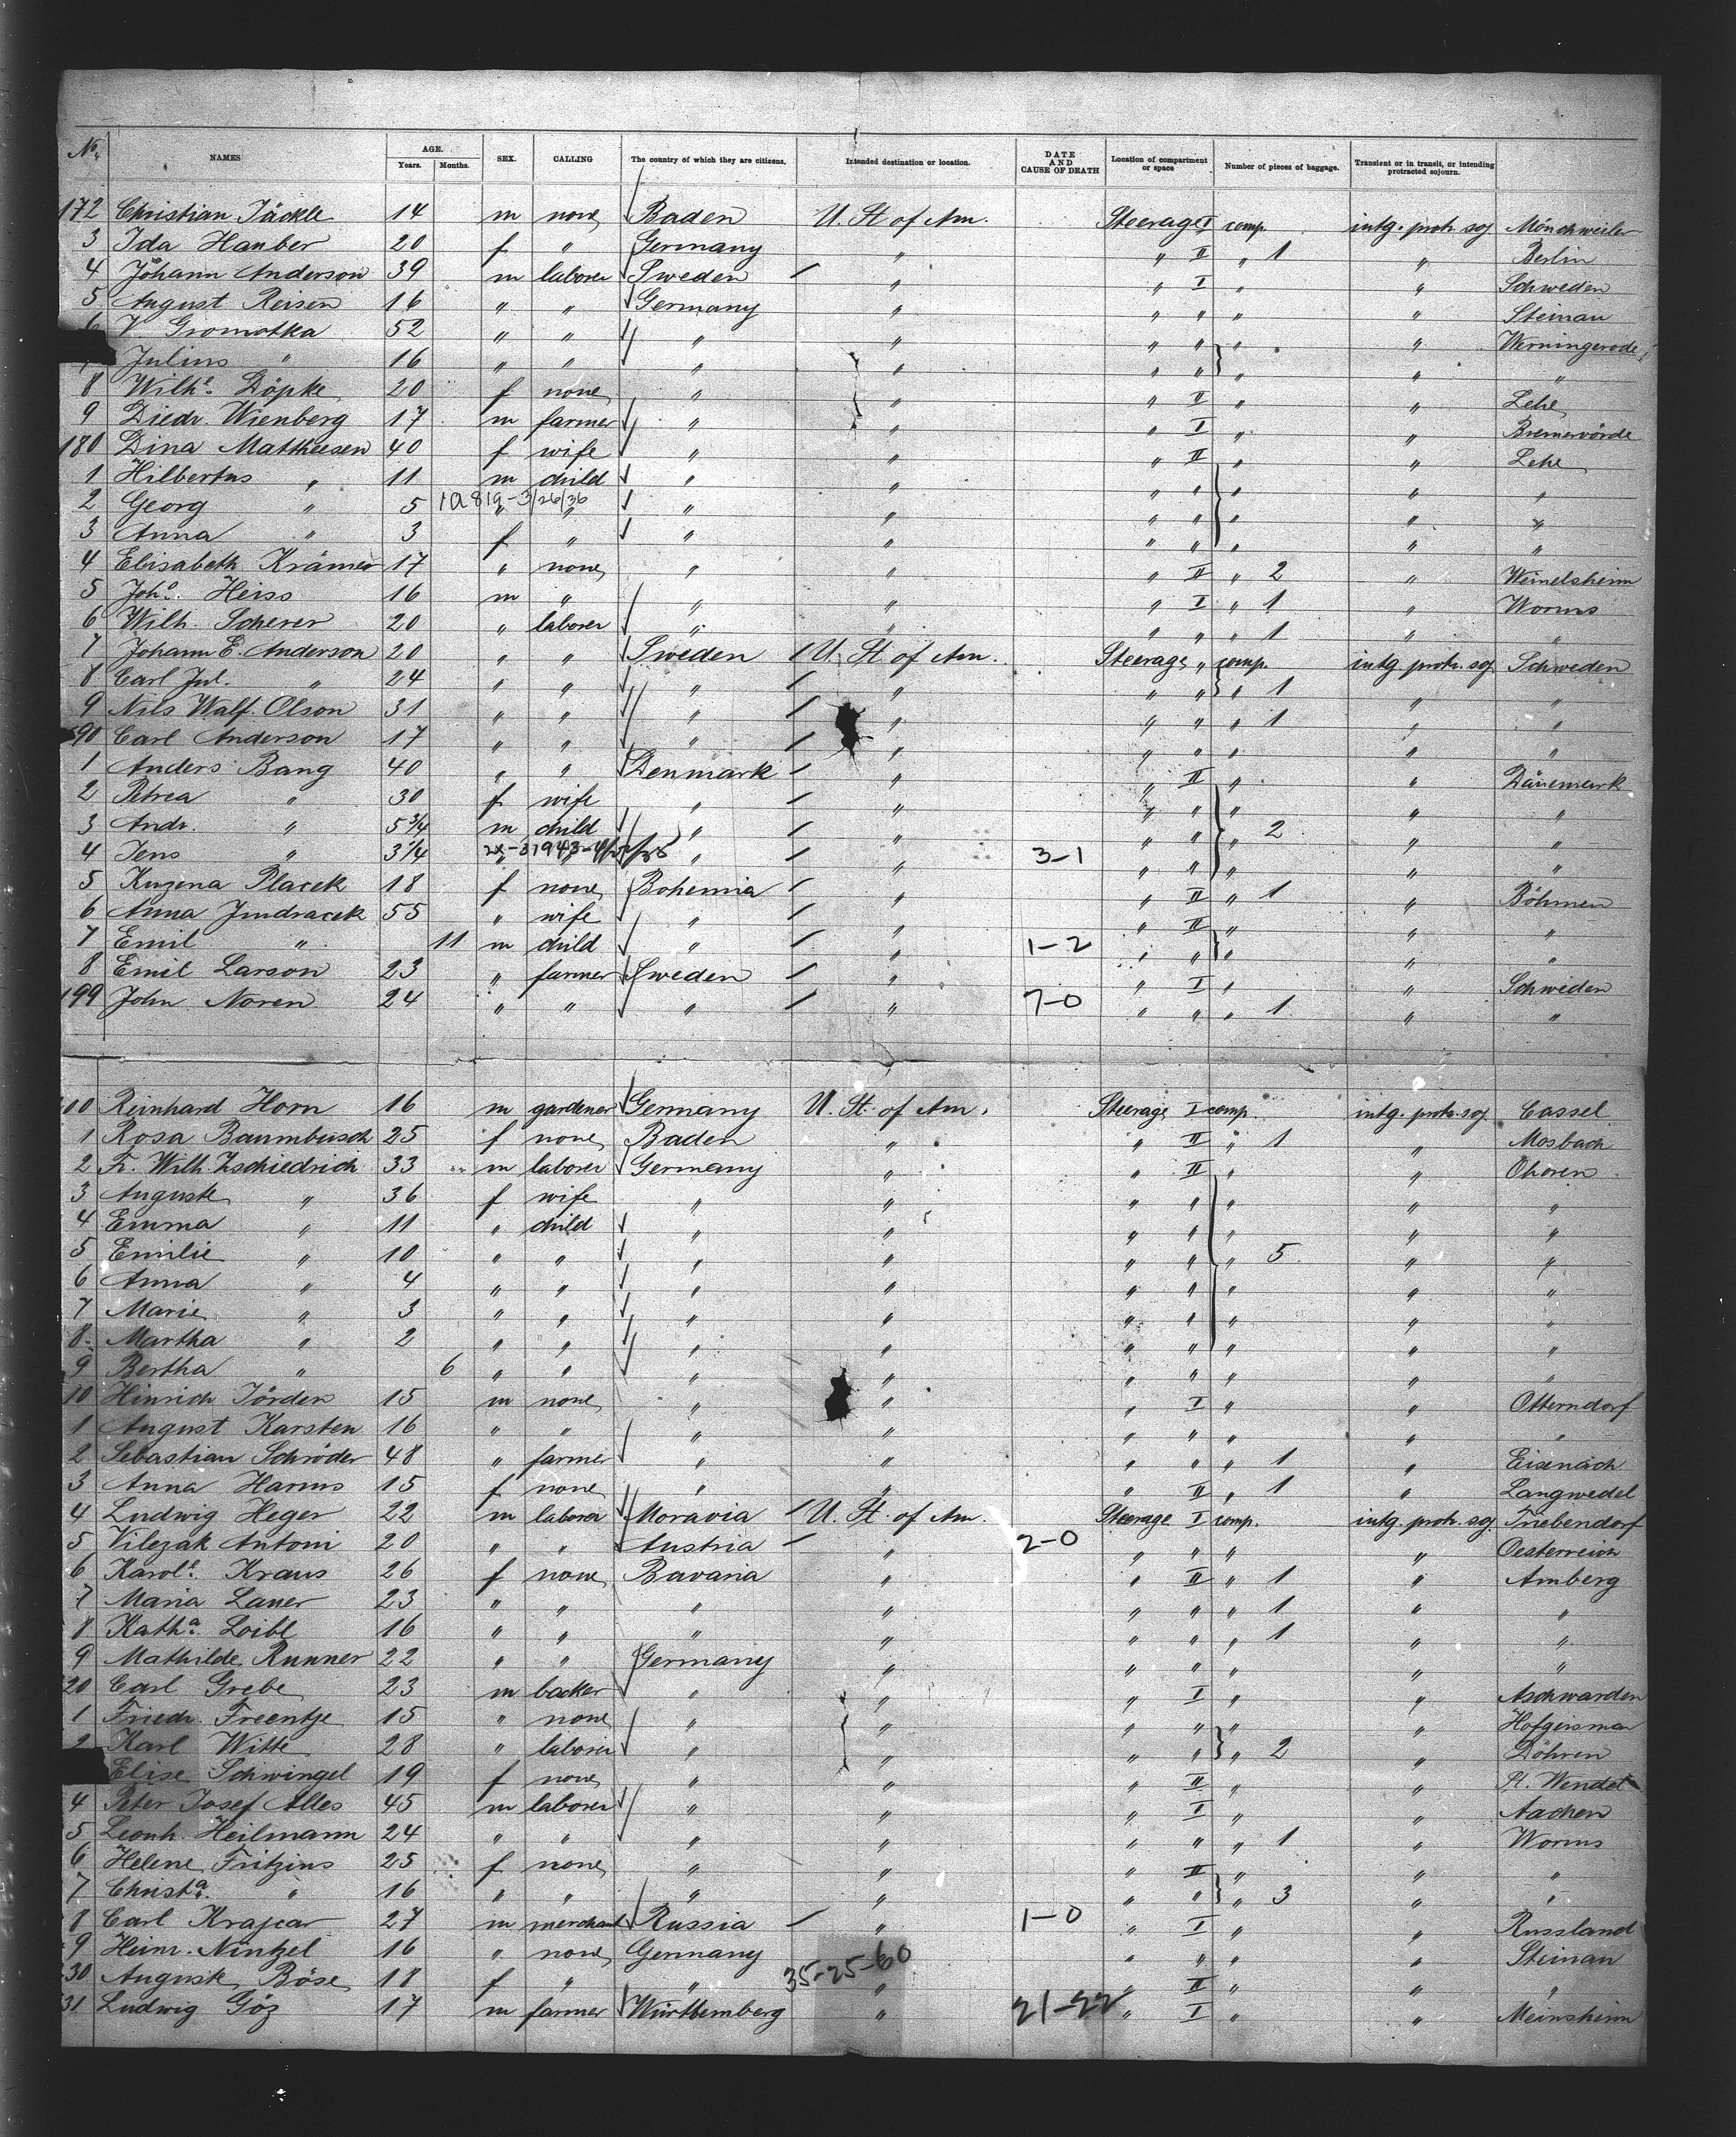 No. NAMES AGE. Years. Months. SEX. CALLING The country of which they are citizens. Intended destination or location. DATE AND CAUSE OF DEATH Location of compartment or space Number of pieces of baggage. Transient or in transit, or intending protracted sojourn.
172 Christian Jäckle 14 m none Baden U. St of Am. Steerage I comp. intg. protr. soj Mönchweiler
3 Ida Hauber 20 f " Germany " " II " 1 " Berlin
4 Johann Anderson 39 m laborer Sweden " " I " " Schweden
5 August Reisen 16 " " Germany " " " " " Steinau
6 V Gromotka 52 " " " " " " " " Werningerode
7 Julius " 16 " " " " " " " " "
8 Wilhe. Döpke 20 f none " " " II " " Lehe
9 Diedr. Wienberg 17 m farmer " " " I " " Bremervörde
180 Dina Mattheesen 40 f wife " " " II " " Lehe
1 Hilbertus " 11 m child " " " " " " "
2 Georg " 5 10819-3/26/36 " " " " " " " " "
3 Anna " 3 f " " " " " " " "
4 Elisabeth Krämer 17 " none " " " II " 2 " Weinelsheim
5 Johs. Heiss 16 m " " " " I " 1 " Worms
6 Wilh. Scherer 20 " laborer " " " " " 1 " "
7 Johann E. Anderson 20 " " Sweden U. St of Am. Steerage " comp. intg protr. soj Schweden
8 Carl Jul. " 24 " " " " " " " 1 " "
9 Nils Walf. Olson 31 " " " " " " " 1 " "
90 Carl Anderson 17 " " " " " " " " "
1 Anders Bang 40 " " Denmark " " II " " Dänemark
2 Petrea " 30 f wife " " " " " " "
3 Andr. " 5 3/4 m child " " " " " 2 " "
4 Jens " 3 1/4 " " " " 3-1 " " " " "
5 Ruzena Placek 18 f none Bohemia " " II " 1 " Böhmen
6 Anna Jindracek 55 " wife " " " II " " "
7 Emil " 11 m child " " 1-2 " " " " "
8 Emil Larson 23 " farmer Sweden " " I " " Schweden
199 John Noren 24 " " " " 7-0 " " " 1 " "
Reinhard Horn 16 m gardener Germany U. St. of Am. Steerage I comp. intg. protr. soj Cassel
1 Rosa Baumbusch 25 f none Baden " " II " 1 " Mosbach
2 Fr. Wilh. Zschiedrich 33 m laborer Germany " " II " " Ohoren
3 Auguste " 36 f wife " " " " " " "
4 Emma " 11 " child " " " " " " "
5 Emilie " 10 " " " " " " " 5 " "
6 Anna " 4 " " " " " " " " "
7 Marie " 3 " " " " " " " " "
8 Martha " 2 " " " " " " " " "
9 Bertha " 6 " " " " " " " " "
10 Hinrich Jörden 15 m none " " " I " " Otterndorf
1 August Karsten 16 " " " " " " " " "
2 Sebastian Schröder 48 " farmer " " " " " 1 " Eisenach
3 Anna Harms 15 f none " " " II " 1 " Langwedel
4 Ludwig Heger 22 m laborer Moravia U. St. of Am. Steerage I comp. intg. protr. soj. Triebendorf
5 Vilezak Antoni 20 " " Austria " 2-0 " " " " Oesterreich
6 Karole. Kraus 26 f none Bavaria " " II " 1 " Amberg
7 Maria Lauer 23 " " " " " " " 1 " "
8 Katha. Loibl 16 " " " " " " " 1 " "
9 Mathilde Runner 22 " " Germany " " " " " "
20 Carl Grebe 23 m backer " " " I " " Aschwarden
1 Friedr. Freentje 15 " none " " " " " " Hofgeismar
2 Karl Witte 28 " laborer " " " " " 2 " Döhren
Elise Schwingel 19 f none " " " II " " St. Wendel
4 Peter Josef Alles 45 m laborer " " " I " " Aachen
5 Leonh. Heilmann 24 " " " " " " " 1 " Worms
6 Helene Fritzius 25 f none " " " II " " "
7 Christa. " 16 " " " " " " " 3 " "
8 Carl Krajcar 27 m merchant Russia " 1-0 " I " " Russland
9 Heinr. Nintzel 16 " none Germany " " " " " Steinau
30 Auguste Böse 18 f " " 35-25-60 " " II " " "
31 Ludwig Göz 17 m farmer Württemberg " 21-22 " I " " Meinsheim